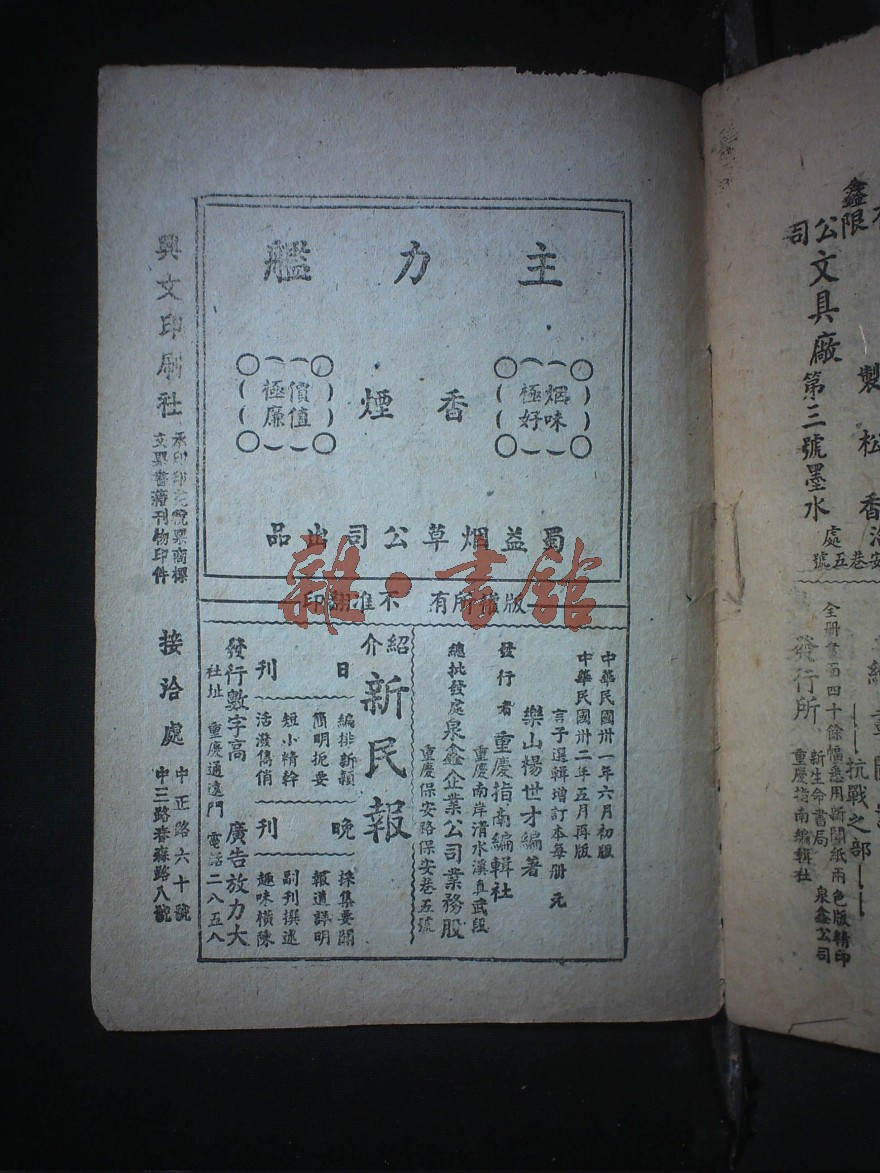 主力艦
香煙
烟味
極好
價值
極廉
蜀益烟草公司出品
版權所有 不准翻印
雜·書館
中華民國卅一年六月初版
中華民國卅二年五月再版
言子選輯增訂本每册 元
樂山楊世才編著
發行者 重慶指南編輯社
重慶南岸清水溪真武段
總批發處 泉鑫企業公司業務股
重慶保安路保安巷五號
介紹
新民報
日刊
編排新穎
簡明扼要
短小精幹
活潑僑俏
晚刊
採集要聞
報道詳明
副刊撰述
趣味橫陳
發行數字高 廣告放力大
社址 重慶通遠門 電話二八五八
興文印刷社
承印印花稅票商標
支票書籍刊物印件
接洽處
中正路六十號
中三路春森路八號
鑫
限
公司
文具廠
第三號墨水
製松香
處
安巷五號
全册書面四十餘幅悉用新聞紙兩色版精印
發行所
新生命書局
重慶指南編輯社
泉鑫公司
抗戰之部